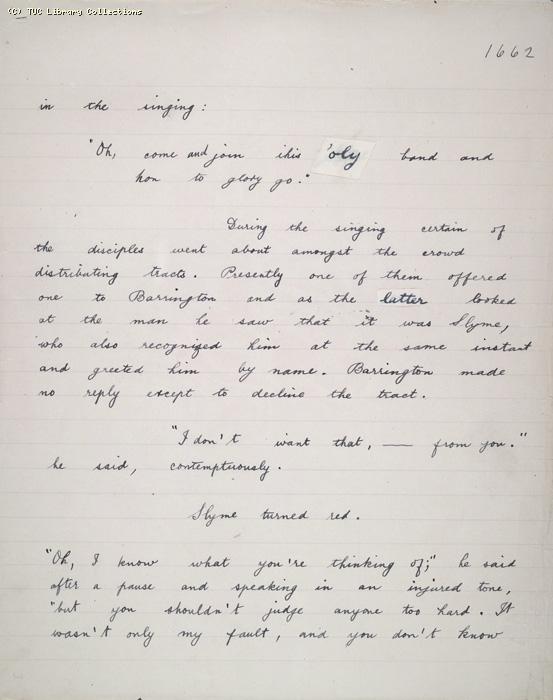 (C) TUC Library Collections
1662
in the singing:
"Oh, come and join this 'oly band and
hon to glory go."
During the singing certain of
the disciples went about amongst the crowd
distributing tracts. Presently one of them offered
one to Barrington and as the latter looked
at the man he saw that it was Slyme,
who also recognized him at the same instant
and greeted him by name. Barrington made
no reply except to decline the tract.
"I don't want that, — from you."
he said, contemptuously.
Slyme turned red.
"Oh, I know what you're thinking of;" he said
after a pause and speaking in an injured tone,
"but you shouldn't judge anyone too hard. It
wasn't only my fault, and you don't know